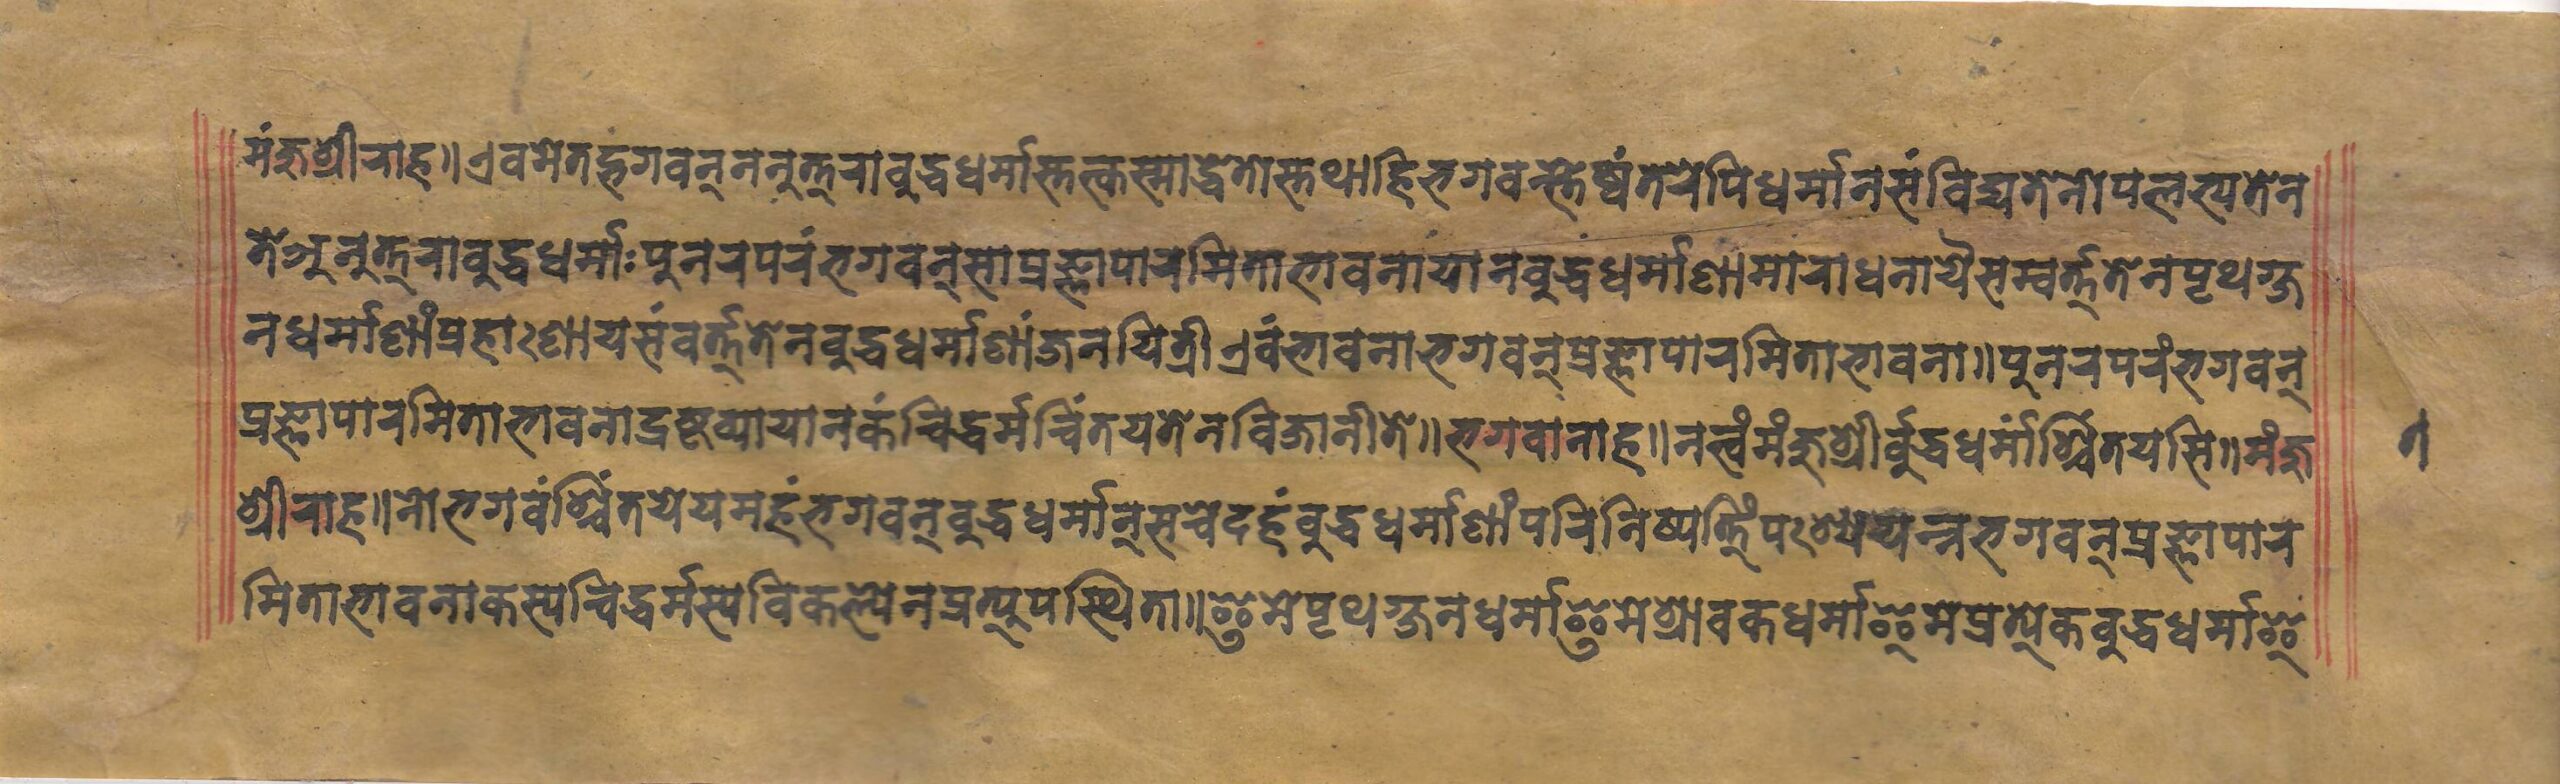 मंजुश्रीराह॥एवमेतद्भगवन्ननुत्तराबुद्धधर्मास्तत्कस्माद्धेतोस्तथाहिभगवन्स्तेष्वंतरेपिधर्मानसंविद्यतेनोपलभ्यतेन
तेअनुत्तराबुद्धधर्माःपुनरपरंभगवन्साप्रज्ञापारमिताभावनायानबुद्धधर्माणामाराधनायैसम्वर्त्ततेनपृथग्ज
नधर्माणांप्रहाणायसंवर्त्ततेनबुद्धधर्माणांजनयित्रीएवंभावनाभगवन्प्रज्ञापारमिताभावना॥पुनरपरंभगवन्
प्रज्ञापारमिताभावनाद्रष्टव्यायानकंचिद्धर्मचिंतयतेनविजानीते॥भगवानाह॥नत्वंमंजुश्रीर्बुद्धधर्मांश्चिंतयसि॥मंजु
श्रीराह॥नोभगवंश्चिंतयेयमहंभगवन्बुद्धधर्मान्सचेदहंबुद्धधर्माणांपरिनिष्पत्तिंपश्येयन्नभगवन्प्रज्ञापार
मिताभावनाकस्यचिद्धर्मस्यविकल्पेनप्रत्युपस्थिता॥इमेपृथग्जनधर्माइमेश्रावकधर्माइमेप्रत्येकबुद्धधर्माइ